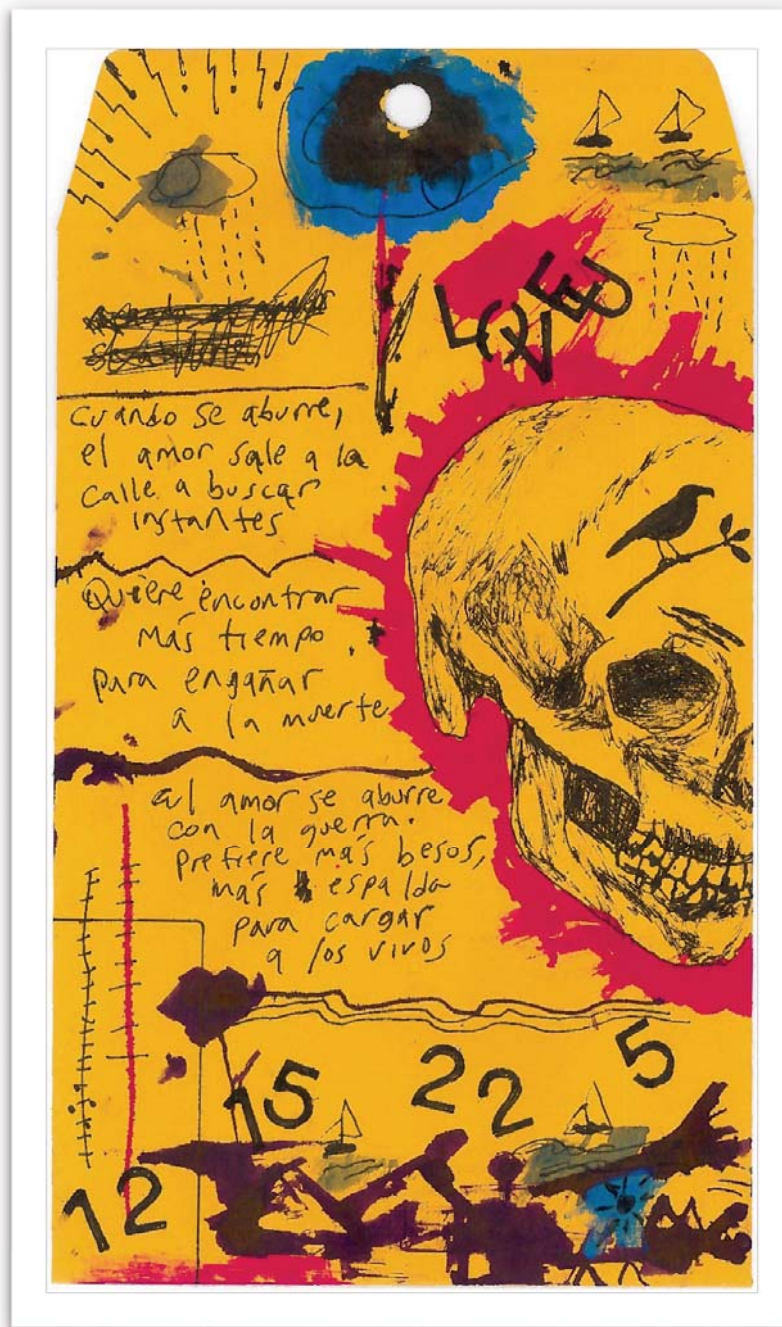 LOVE
Cuando se aburre,
el amor sale a la
calle a buscar
instantes
Quiere encontrar
más tiempo
para engañar
a la muerte
al amor se aburre
con la guerra.
prefiere más besos,
más espalda
para cargar
a los vivos
15
22
5
12